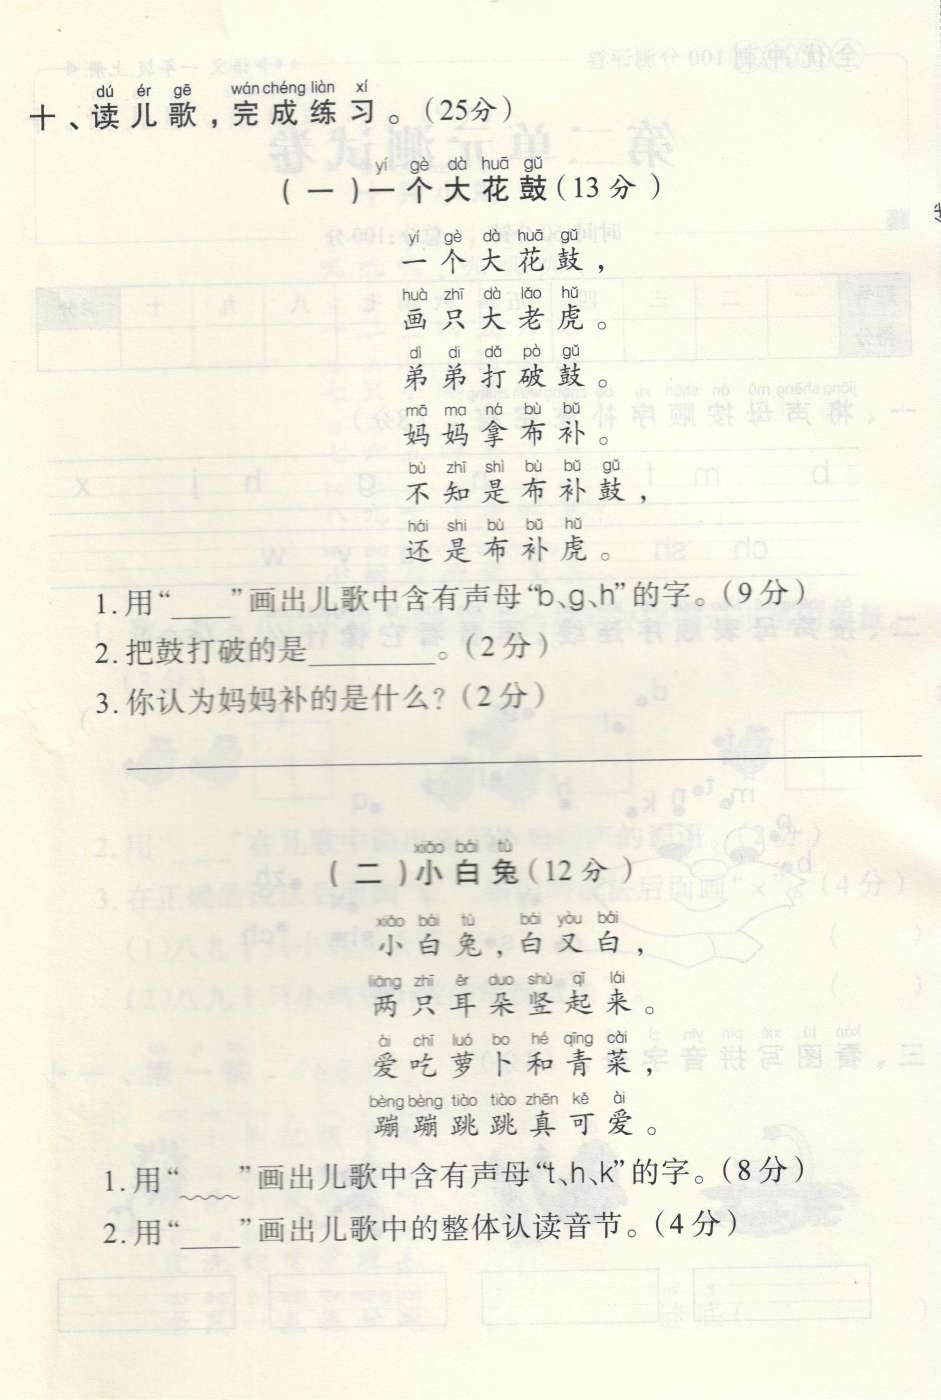 dú ér gē wán chéng liàn xí
十、读儿歌,完成练习。(25分)
yí gè dà huā gǔ
(一)一个大花鼓(13分)
yí gè dà huā gǔ
一个大花鼓,
huà zhī dà lǎo hǔ
画只大老虎。
dì di dǎ pò gǔ
弟弟打破鼓。
mā ma ná bù bǔ
妈妈拿布补。
bù zhī shì bù bǔ gǔ
不知是布补鼓,
hái shi bù bǔ hǔ
还是布补虎。
1.用“____”画出儿歌中含有声母“b、g、h”的字。(9分)
2.把鼓打破的是________。(2分)
3.你认为妈妈补的是什么?(2分)
xiǎo bái tù
(二)小白兔(12分)
xiǎo bái tù bái yòu bái
小白兔,白又白,
liǎng zhī ěr duo shù qǐ lái
两只耳朵竖起来。
ài chī luó bo hé qīng cài
爱吃萝卜和青菜,
bèng bèng tiào tiào zhēn kě ài
蹦蹦跳跳真可爱。
1.用“﹏﹏”画出儿歌中含有声母“t、h、k”的字。(8分)
2.用“____”画出儿歌中的整体认读音节。(4分)